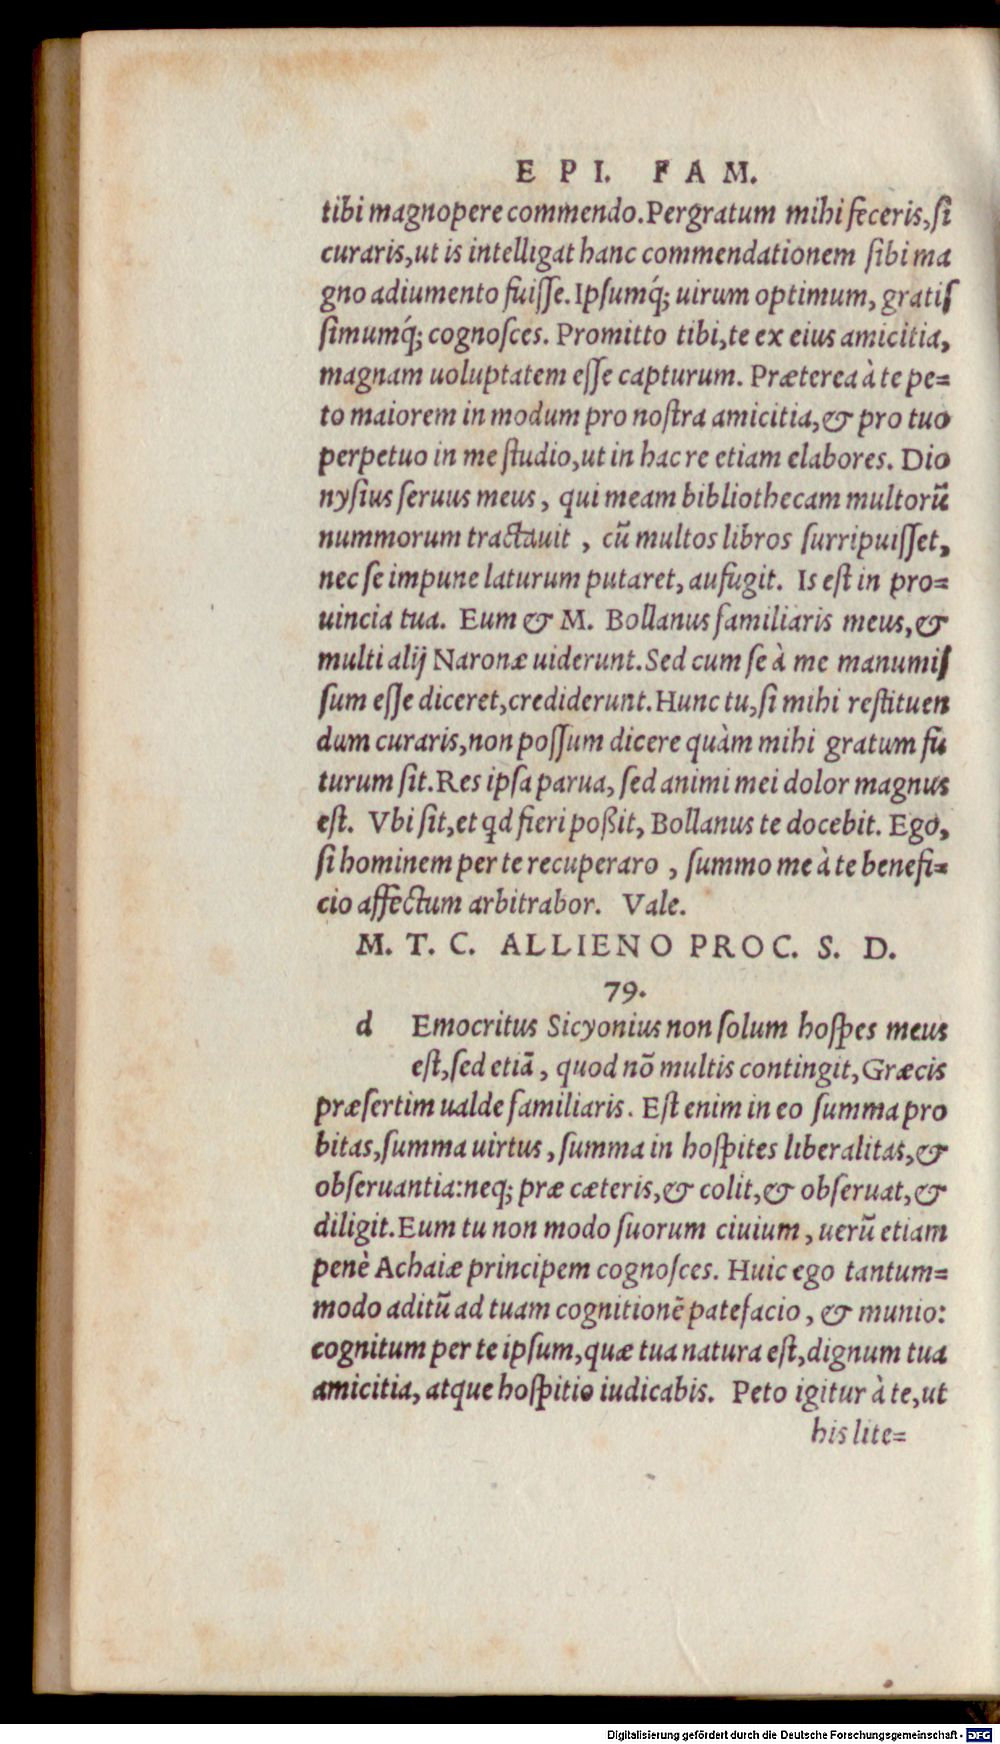 EPI. FAM.
tibi magnopere commendo. Pergratum mihi feceris, si
curaris, ut is intelligat hanc commendationem sibi ma
gno adiumento fuisse. Ipsumq́; uirum optimum, gratis
simumq́; cognosces. Promitto tibi, te ex eius amicitia,
magnam uoluptatem esse capturum. Præterea à te pe=
to maiorem in modum pro nostra amicitia, & pro tuo
perpetuo in me studio, ut in hac re etiam elabores. Dio
nysius seruus meus, qui meam bibliothecam multorũ
nummorum tractauit, cũ multos libros surripuisset,
nec se impune laturum putaret, aufugit. Is est in pro=
uincia tua. Eum & M. Bollanus familiaris meus, &
multi alij Naronæ uiderunt. Sed cum se à me manumis
sum esse diceret, crediderunt. Hunc tu, si mihi restituen
dum curaris, non possum dicere quàm mihi gratum fu
turum sit. Res ipsa parua, sed animi mei dolor magnus
est. Vbi sit, et qd fieri poßit, Bollanus te docebit. Ego,
si hominem per te recuperaro, summo me à te benefi=
cio affectum arbitrabor. Vale.
M. T. C. ALLIENO PROC. S. D.
79.
d Emocritus Sicyonius non solum hospes meus
est, sed etiã, quod nõ multis contingit, Græcis
præsertim ualde familiaris. Est enim in eo summa pro
bitas, summa uirtus, summa in hospites liberalitas, &
obseruantia: neq; præ cæteris, & colit, & obseruat, &
diligit. Eum tu non modo suorum ciuium, uerũ etiam
penè Achaiæ principem cognosces. Huic ego tantum=
modo aditũ ad tuam cognitionẽ patefacio, & munio:
cognitum per te ipsum, quæ tua natura est, dignum tua
amicitia, atque hospitio iudicabis. Peto igitur à te, ut
his lite=
Digitalisierung gefördert durch die Deutsche Forschungsgemeinschaft - DFG